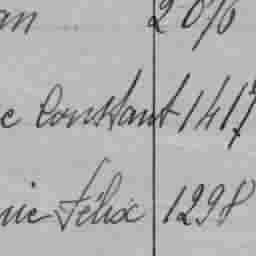 an 2096
c Constant 1417
uie Félix 1298